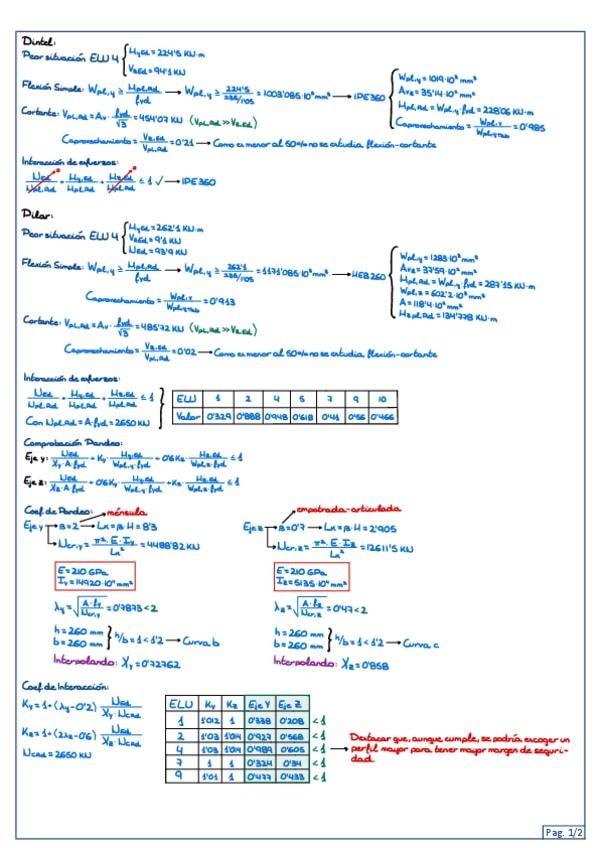 Dintel:
Peor situación ELU 4 { My,Ed = 224'5 KN·m
VzEd = 94'1 KN
Flexión Simple: Wpl,y ≥ Mpl,Rd / fyd → Wpl,y ≥ 224'5 / 235/1'05 = 1003'085·10³ mm³ → IPE360 { Wpl,y = 1019·10³ mm³
Avz = 35'14·10² mm²
Mpl,Rd = Wpl,y·fyd = 228'06 KN·m
Caprovechamiento = Wpl,y / Wpl,yTab = 0'985
Cortante: Vpl,Rd = Av · fyd / √3 = 454'07 KN (Vpl,Rd >> Vz,Ed)
Caprovechamiento = Vz,Ed / Vpl,Rd = 0'21 → Como es menor al 50% no se estudia flexión-cortante
Interacción de esfuerzos:
NEd / Npl,Rd + My,Ed / Mpl,Rd + Mz,Ed / Mpl,Rd ≤ 1 ✓ → IPE360
Pilar:
Peor situación ELU 4 { My,Ed = 262'1 KN·m
VzEd = 9'1 KN
NEd = 93'9 KN
Flexión Simple: Wpl,y ≥ Mpl,Rd / fyd → Wpl,y ≥ 262'1 / 235/1'05 = 1171'085·10³ mm³ → HEB260 { Wpl,y = 1283·10³ mm³
Avz = 37'59·10² mm²
Mpl,Rd = Wpl,y·fyd = 287'15 KN·m
Wpl,z = 602'2·10³ mm³
A = 118'4·10² mm²
Mz,pl,Rd = 134'778 KN·m
Caprovechamiento = Wpl,y / Wpl,yTab = 0'913
Cortante: Vpl,Rd = Av · fyd / √3 = 485'72 KN (Vpl,Rd >> VzEd)
Caprovechamiento = Vz,Ed / Vpl,Rd = 0'02 → Como es menor al 50% no se estudia flexión-cortante
Interacción de esfuerzos:
NEd / Npl,Rd + My,Ed / Mpl,Rd + Mz,Ed / Mpl,Rd ≤ 1
Con Npl,Rd = A·fyd = 2650 KN
ELU 1 2 4 5 7 9 10
Valor 0'329 0'888 0'948 0'618 0'41 0'56 0'466
Comprobación Pandeo:
Eje y: NEd / Xy·A·fyd + Ky · My,Ed / Wpl,y·fyd + 0'6Kz · Mz,Ed / Wpl,z·fyd ≤ 1
Eje z: NEd / Xz·A·fyd + 0'6Ky · My,Ed / Wpl,y·fyd + Kz · Mz,Ed / Wpl,z·fyd ≤ 1
Coef. de Pandeo: ménsula
Eje y → β = 2 → Lk = β·H = 8'3
Ncr,y = π²·E·Iy / Lk² = 4488'82 KN
E = 210 GPa
Iy = 14920·10⁴ mm⁴
λy = √(A·fy / Ncr,y) = 0'7873 < 2
h = 260 mm
b = 260 mm } h/b = 1 < 1'2 → Curva b
Interpolando: Xy = 0'72762
empotrada-articulada
Eje z → β = 0'7 → Lk = β·H = 2'905
Ncr,z = π²·E·Iz / Lk² = 12611'5 KN
E = 210 GPa
Iz = 5135·10⁴ mm⁴
λz = √(A·fz / Ncr,z) = 0'47 < 2
h = 260 mm
b = 260 mm } h/b = 1 < 1'2 → Curva c
Interpolando: Xz = 0'858
Coef. de Interacción:
Ky = 1 + (λy - 0'2) NEd / Xy·NcRd
Kz = 1 + (2λz - 0'6) NEd / Xz·NcRd
NcRd = 2650 KN
ELU Ky Kz Eje Y Eje Z
1 1'012 1 0'338 0'208 < 1
2 1'03 1'014 0'927 0'568 < 1
4 1'03 1'014 0'989 0'605 < 1
7 1 1 0'324 0'34 < 1
9 1'01 1 0'477 0'433 < 1
Destacar que, aunque cumple, se podría escoger un
perfil mayor para tener mayor margen de seguri-
dad.
Pag. 1/2